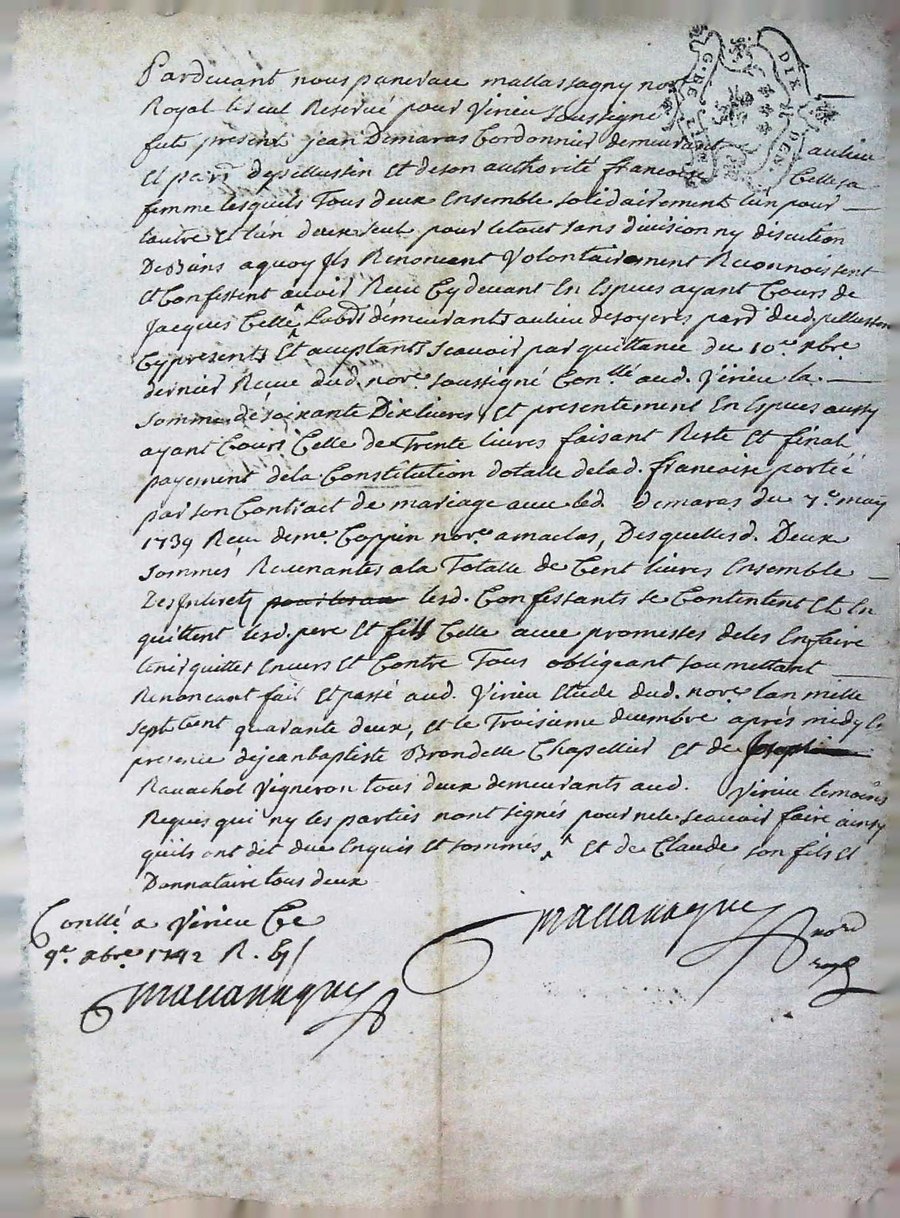 Pardevant nous pancrace mallassagny nore
Royal le seul Reservé pour Virieu soussigné
fut present jean Demaras Cordonnier demeurant au lieu
et parr. de pellussin et de son authorité francoise Celle sa
femme lesquels Tous deux Ensemble solidairement lun pour
lautre et lun deux seul pour le tout sans division ny discution
De biens a quoy ils Renoncent Volontairement Reconnoissent
et Confessent avoir Receu Cy devant En Especes ayant Cours de
jacques Celle ^ Labrs demeurants au lieu de soyeres parr. dud. pellussin
Cy presents et acceptants scavoir par quittance du 10e xbre
dernier Receue dud. nore soussigné Conllé aud. Virieu la
somme de soixante Dix livres et presentement En Especes aussy
ayant Cours Celle de Trente livres faisant Reste et final
payement de la Constitution dotalle de lad. francoise portée
par son Contract de mariage avec led. Demaras du 7e may
1739 Receu de me Coppin nore a maclas, Desquelles d. Deux
sommes Revenantes a la Totalle de Cent livres Ensemble
Des jnterets lesd. Confessants se Contentent et En
quittent lesd. pere et fils Celle avec promesses de les En faire
tenir quittes Envers et Contre Tous obligeant soumettant
Renoncant fait et passé aud. Virieu Etude dud. nore lan mille
sept Cent quarante deux, et le Troisieme decembre aprés midy En
presence de jean baptiste Brondelle Chapellier et de Joseph
Ravachol Vigneron tous deux demeurants aud. Virieu temoins
Requis qui ny les parties nont signés pour ne le scavoir faire ainsy
quils ont dit due Enquis et sommés ^ et de Claude son fils et
Donnataire tous deux
Conllé a Virieu Ce
9e xbre 1742 R.
Mallassagny
Mallassagny nore
royal
G.E
DIX DEN.